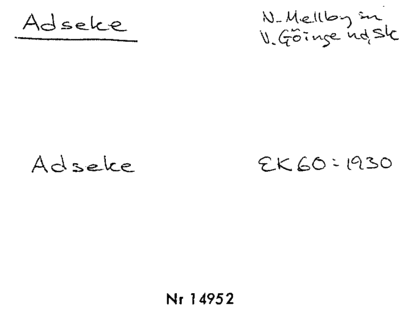 Adseke
N. Mellby sn
V. Göinge hd, Sk
Adseke
EK60 = 1930
Nr 14952